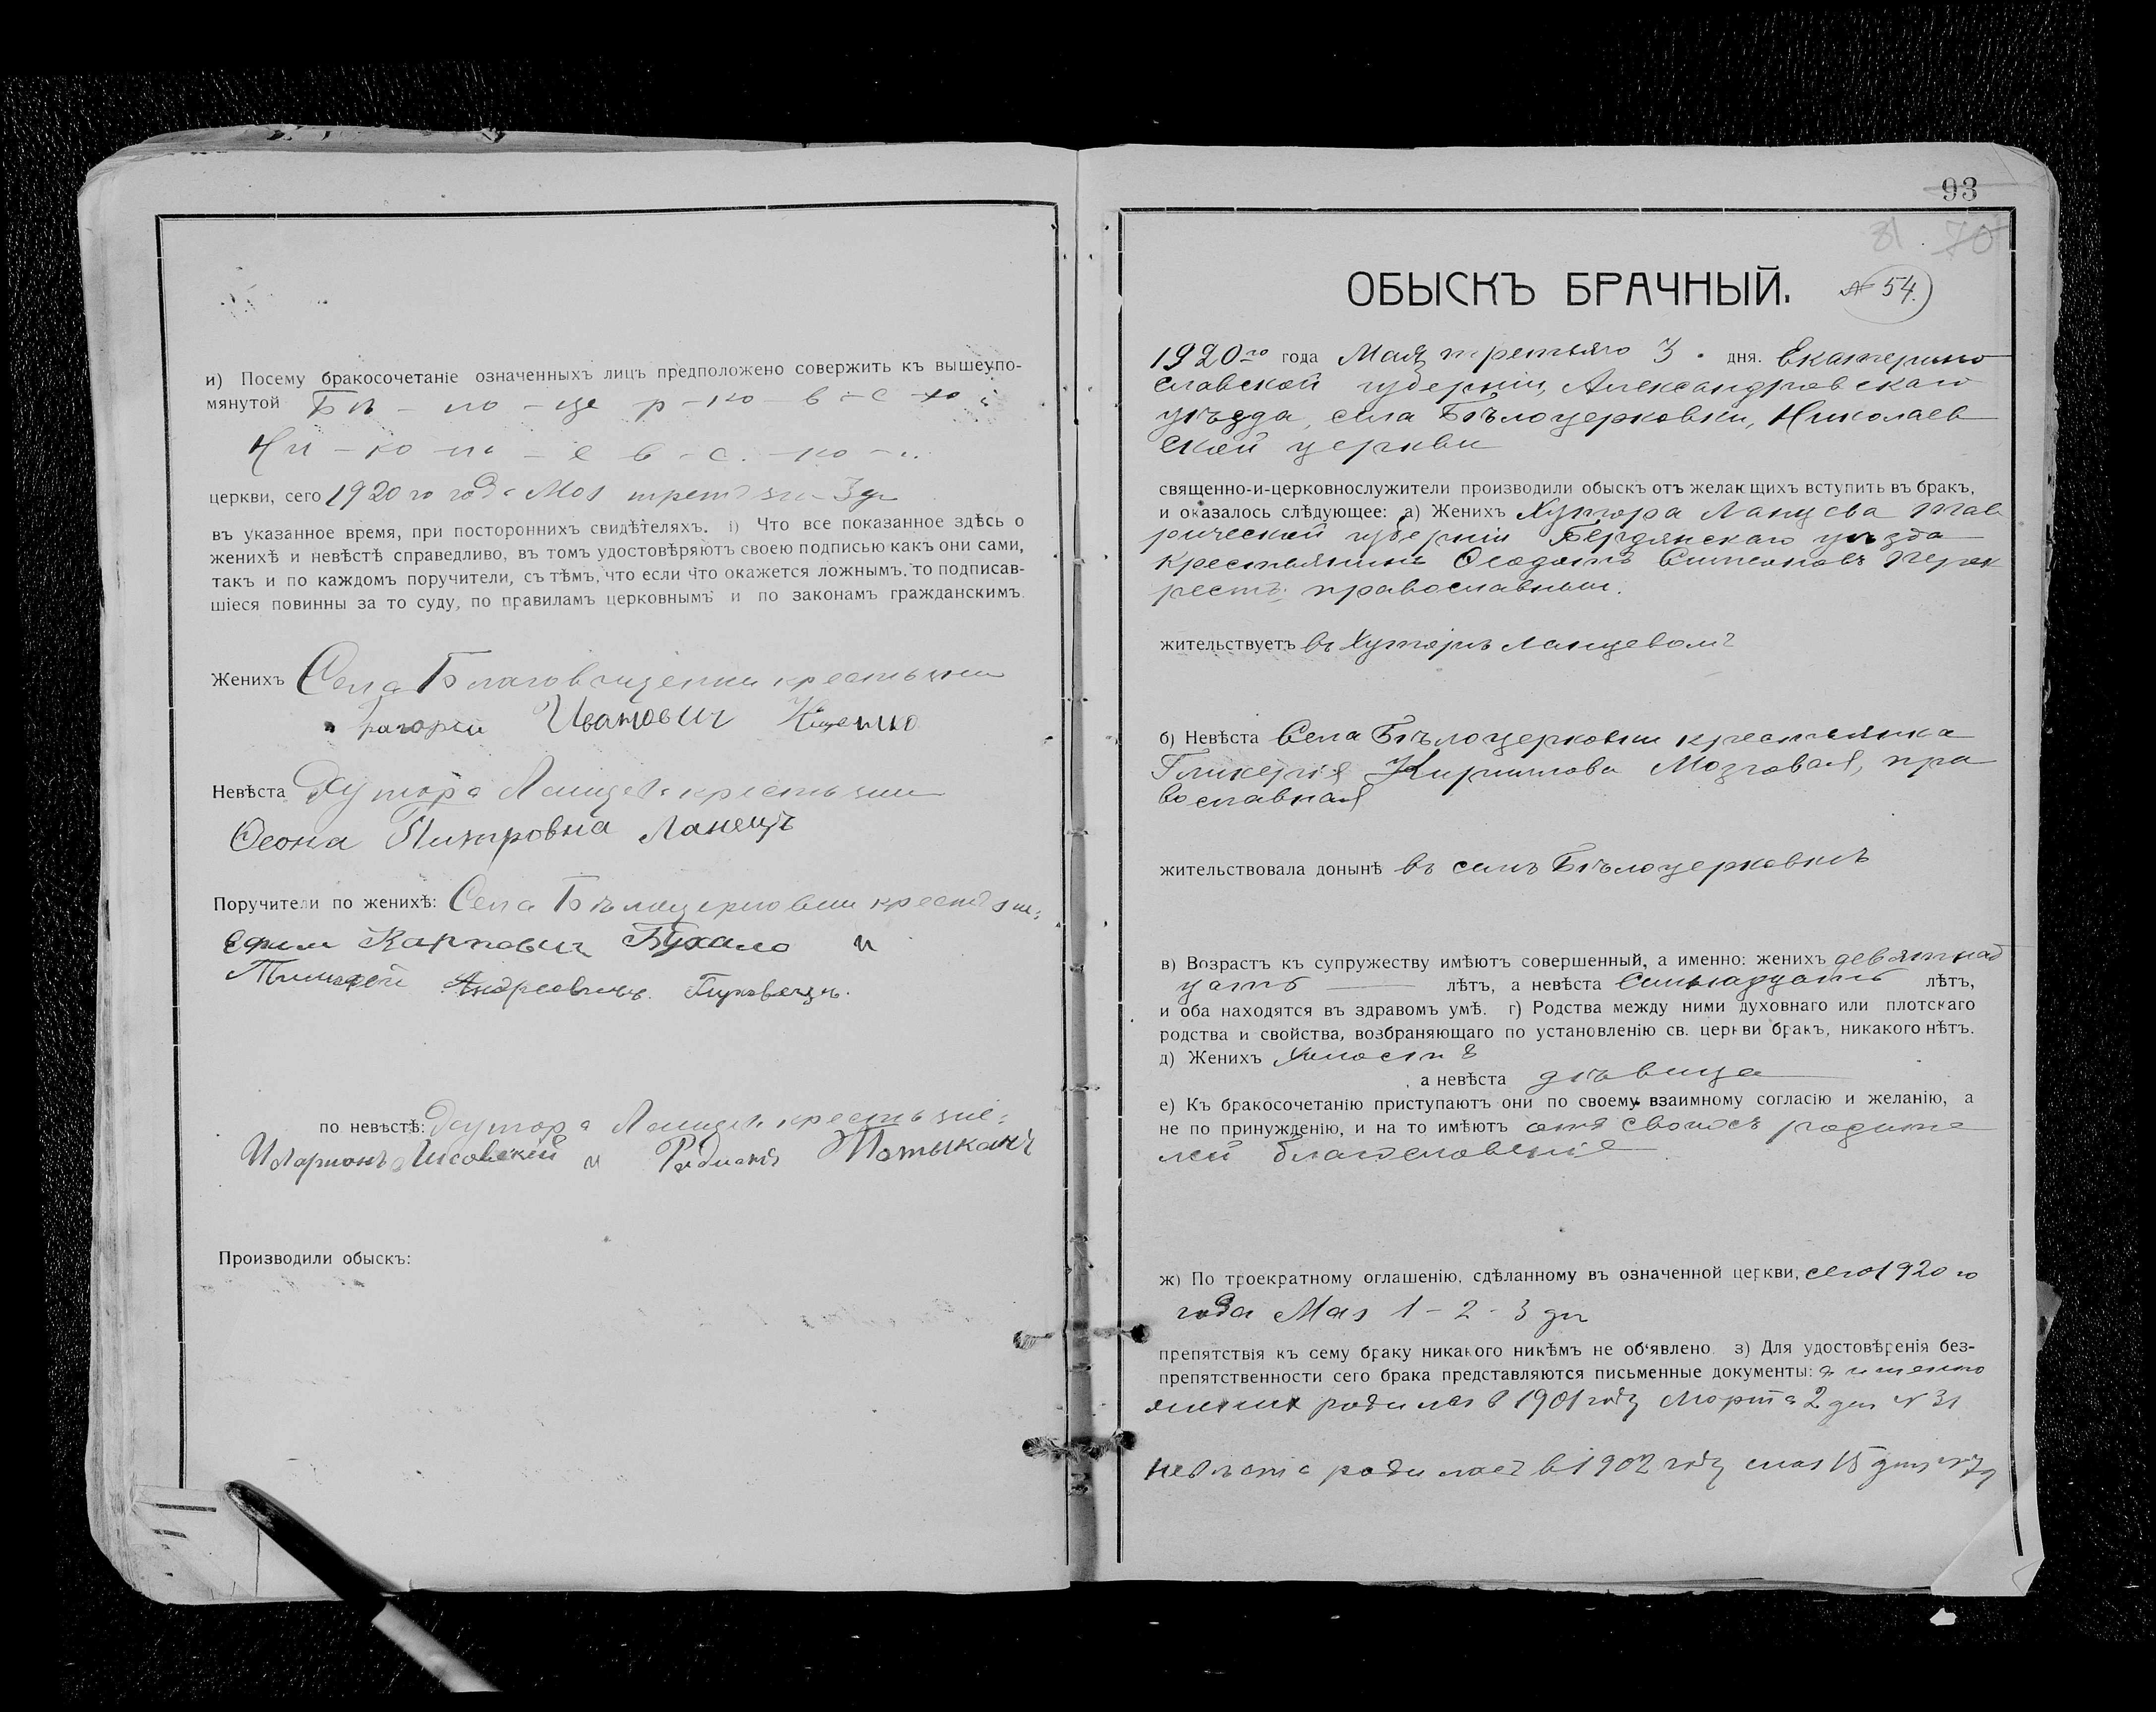 и) Посему бракосочетаніе означенныхъ лицъ предположено совержить къ вышеупо-
мянутой Бѣ - ло - це р - ко - в - с - ко й
Ни - ко - ла - е в - с - ко - й
церкви, сего 1920 го года Мая 3 дн
въ указанное время, при постороннихъ свидѣтеляхъ. і) Что все показанное здѣсь о
женихѣ и невѣстѣ справедливо, въ томъ удостовѣряютъ своею подписью какъ они сами,
такъ и по каждомъ поручители, съ тѣмъ, что если что окажется ложнымъ, то подписав-
шіеся повинны за то суду, по правиламъ церковнымъ и по законамъ гражданскимъ.
Женихъ Села Благовѣщенки
Григорій Ивановичъ Ищенко
Невѣста Хутора Ланцева
Ѳеона Питровна Ланецъ
Поручители по женихѣ: Села Бѣлоцерковки
Ефим Карпович Бухало и
Тимофей Андреевичъ
по невѣстѣ: Хутора Ланцева крестьяне:
Иларионъ Лисовский и Потыканъ
Производили обыскъ:
93
81 70
ОБЫСКЪ БРАЧНЫЙ. № 54.
1920 го года Мая третьяго 3. дня. Екатерино
славской губерніи, Александровскаго
уѣзда, села Бѣлоцерковки, Николаев
ской церкви
священно-и-церковнослужители производили обыскъ отъ желающихъ вступить въ бракъ,
и оказалось слѣдующее: а) Женихъ Хутора Ланцева Тав
рической губерніи Бердянскаго уѣзда
крестьянинъ Ѳеодотъ Симеоновъ Перех
рестъ, православный.
жительствуетъ въ Хуторѣ Ланцевомъ
б) Невѣста Села Бѣлоцерковки крестьянка
Гликерія Кириллова Мозговая, пра
вославная
жительствовала донынѣ въ селѣ Бѣлоцерковкѣ
в) Возрастъ къ супружеству имѣютъ совершенный, а именно: женихъ девятнад
цать лѣтъ, а невѣста Семнадцать лѣтъ,
и оба находятся въ здравомъ умѣ. г) Родства между ними духовнаго или плотскаго
родства и свойства, возбраняющаго по установленію св. церкви бракъ, никакого нѣтъ.
д) Женихъ Холостъ
а невѣста дѣвица
е) Къ бракосочетанію приступаютъ они по своему взаимному согласію и желанію, а
не по принужденію, и на то имѣютъ отъ своихъ родите
лей благословеніе
ж) По троекратному оглашенію, сдѣланному въ означенной церкви, сего 1920 го
года Мая 1 - 2 - 3 дн
препятствія къ сему браку никакого никѣмъ не объявлено. з) Для удостовѣренія без-
препятственности сего брака представляются письменные документы: а именно
жених родился в 1901 году Марта 2 дня № 31
невѣста родилась в 1902 году мая 15 дня